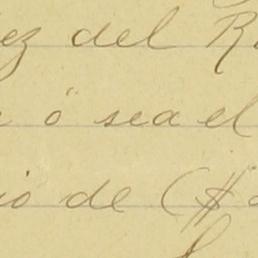 ez del R
ó sea el
io de ($